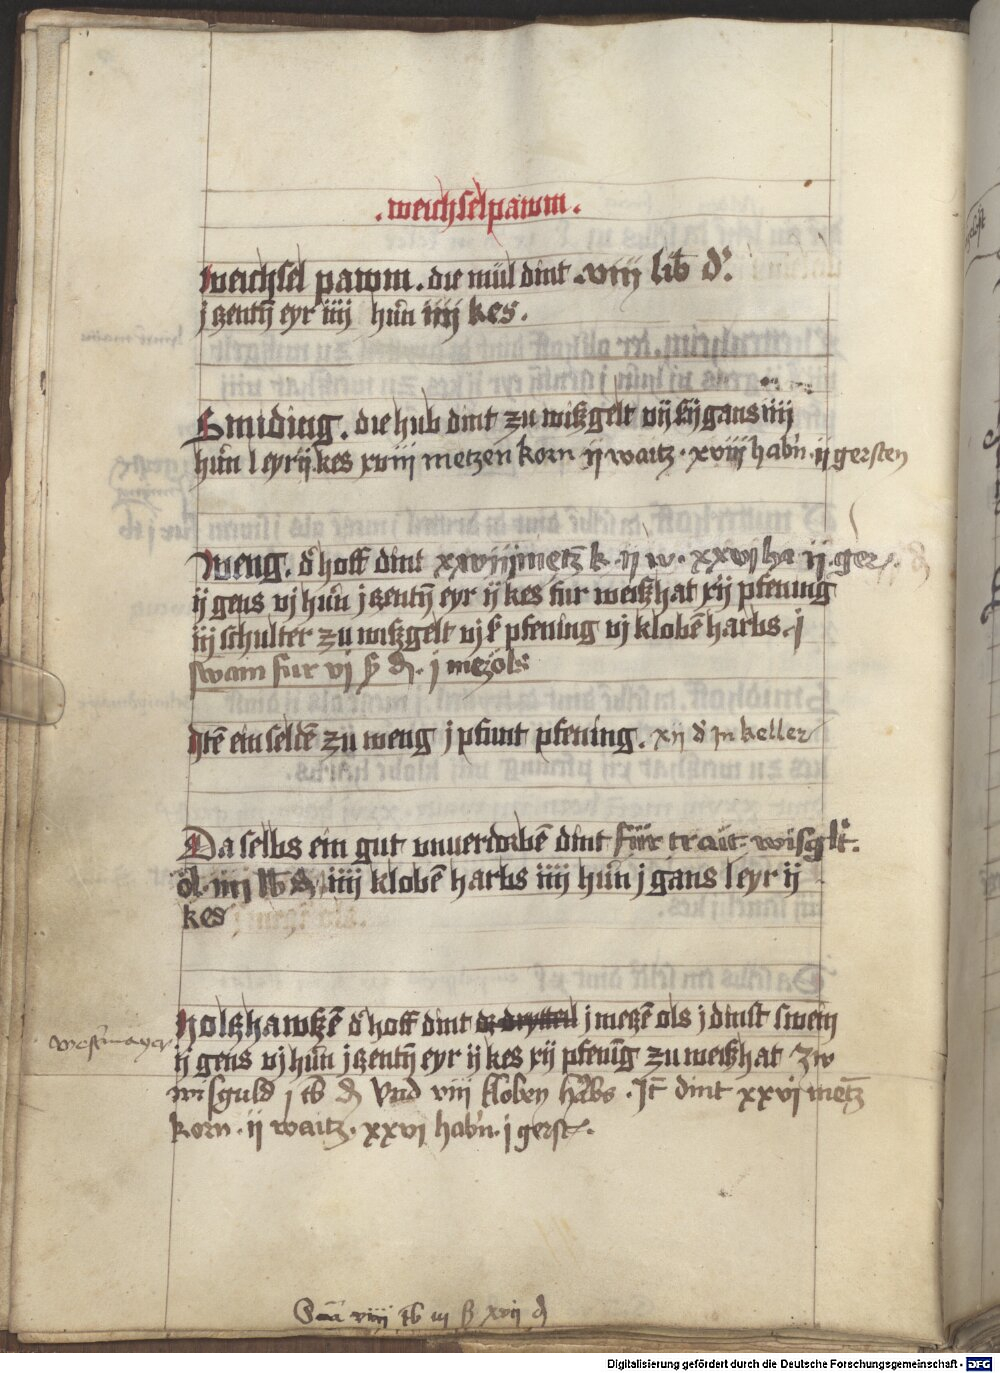 . weichselpawm .
Weichsel pawm . die mül dint . viij lib d.
j zentñ eyr iiij hün iiij kes .
Smiding . die hub dint zu wiszgelt vij ß ij gans iiij
hün l eyr ij kes xviij metzen korn ij waitz . xviij habn . ij gersten
Weng . d hoff dint xxviij metz k . ij w . xxvi ha ij . ger
ij gens vj hün j zentñ eyr ij kes fur weiszhat xij pfening
iij schulter zu wiszgelt vj ß pfening vj klobē harbs . j
swain fur vj ß d . j mez öls
Itē ein seldē zu weng j pfunt pfening . xij d in keller
Da selbs ein gut vnuerdorbē dint für trait . wisglt .
öl . iiij lb d iiij klobē harbs iiij hün j gans l eyr ij
kes j mezē ols .
Holzhawszē d hoff dint dz dryttail j mezē ols j dinst swein
ij gens vj hün j zentñ eyr ij kes xij pfenīg zu weiszhat zw
westermayer
wisguld j lb d Vnd viii kloben harbs . It dint xxvj metz
korn . ij waitz . xxvj habn . j gerst .
Sma viiij lb iij ß xvij d
Digitalisierung gefördert durch die Deutsche Forschungsgemeinschaft - DFG